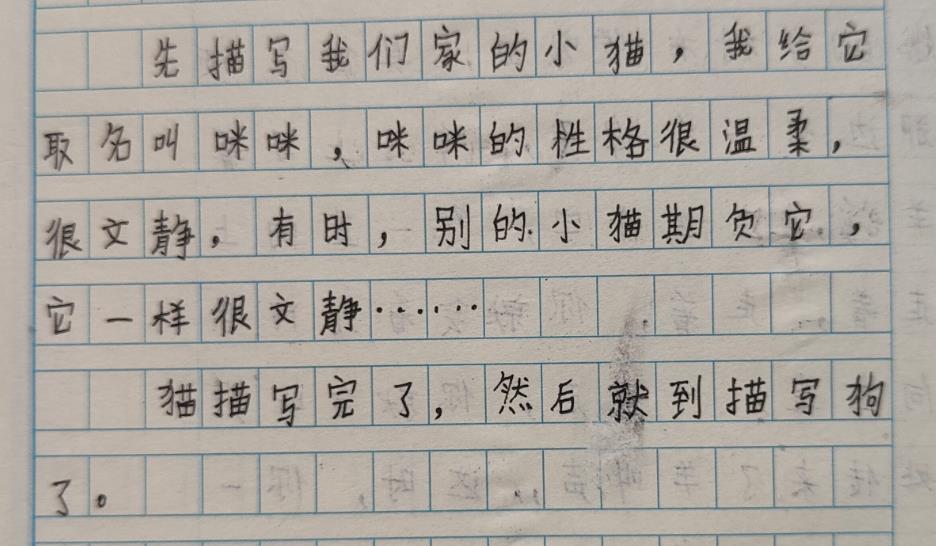 先描写我们家的小猫，我给它
取名叫咪咪，咪咪的性格很温柔，
很文静，有时，别的小猫期负它，
它一样很文静……
猫描写完了，然后就到描写狗
了。